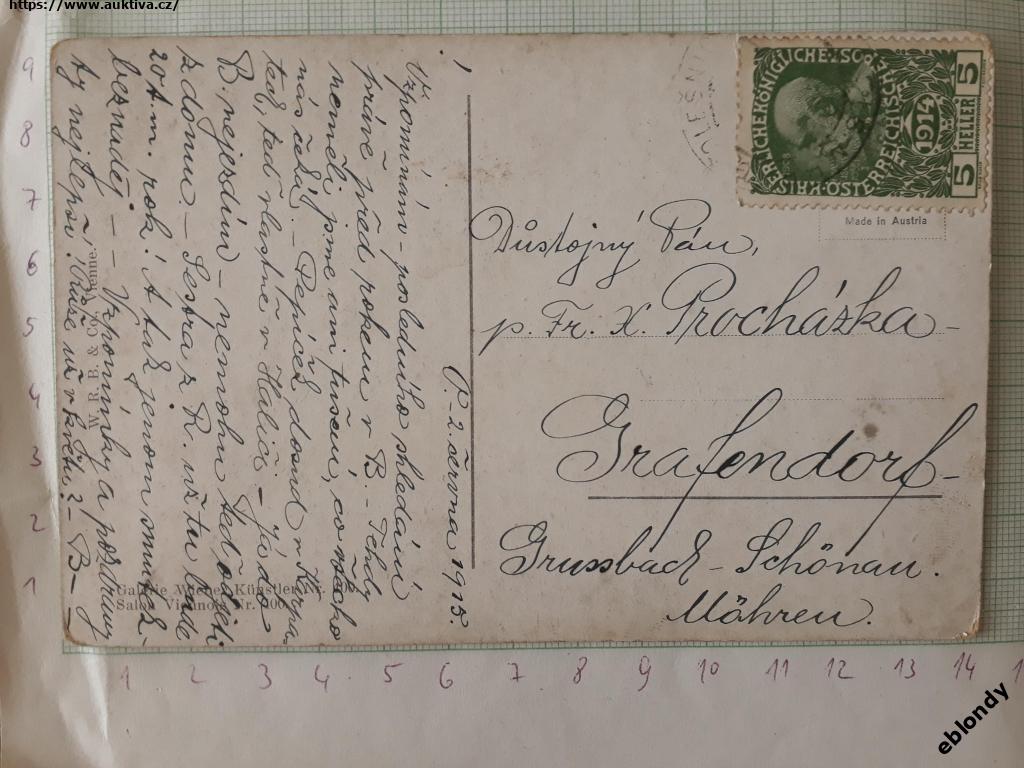 https://www.auktiva.cz/
P.-2. června 1915.
Vzpomínám - posledního shledání
právě před rokem v B. - Tehdy
neměli jsme ani tušení, co všecko
nás čeká. - Pepíček dosud v
teď vlastně v Haliči. - Já do
B. nejezdím - nemohu teď odejíti
z domu. - Sestra z R. už tu bude
20t. m. rok! A tak jenom smutek -
beznaděj. - Vzpomínky a pozdravy
ty nejlepší! Růže už v květu? - B -
W. R. B. & Co., Vienne.
Galerie Wiener Künstler Nr.
Salon Viennois Nr.
KAISERLICHE KÖNIGLICHE
ÖSTERREICHISCHE
1914
5 HELLER 5
Made in Austria
Důstojný Pán,
p. Fr. X. Procházka -
Grafendorf -
Grussbach - Schönau.
Mähren.
9
8
7
6
5
4
3
2
1
1 2 3 4 5 6 7 8 9 10 11 12 13 14 1
eblondy